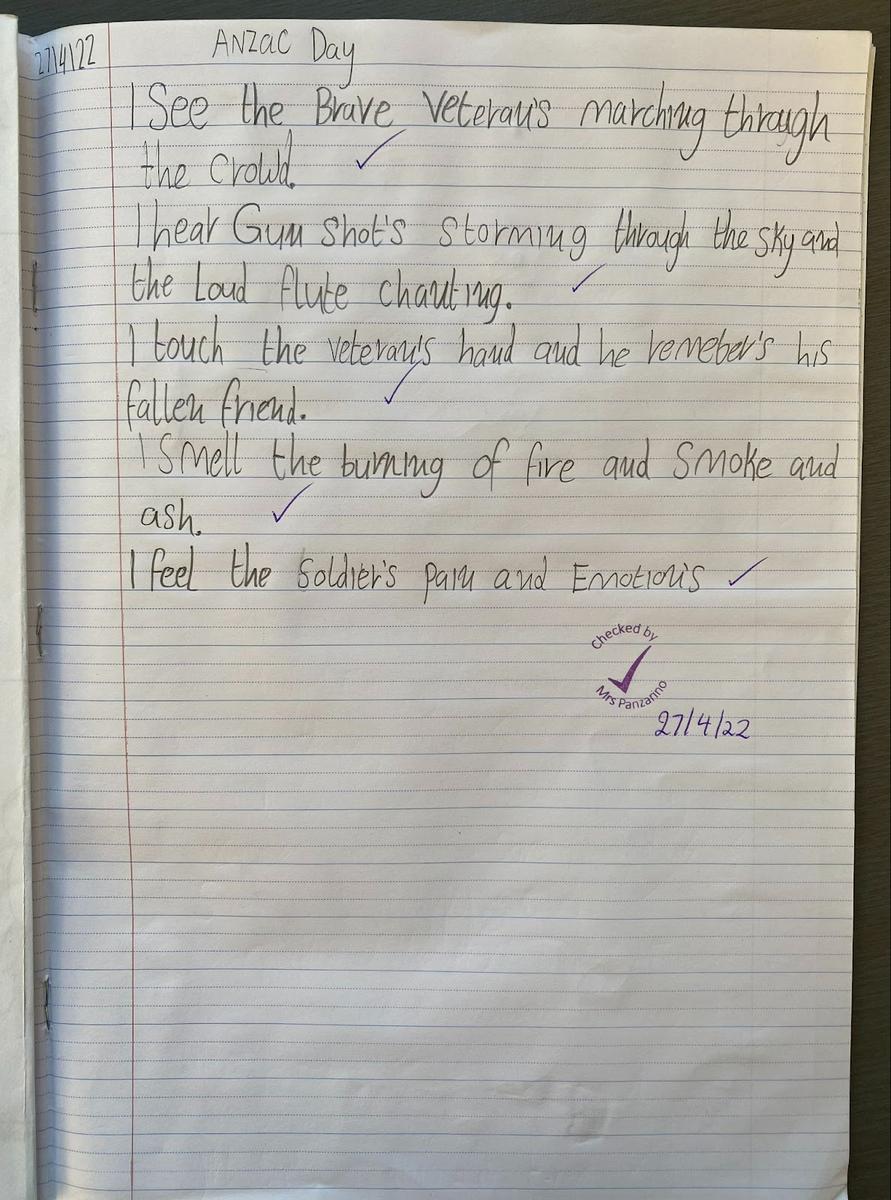 27/4/22 ANZAC Day
I See the Brave Veteran's marching through
the Crowd.
I hear Gun Shot's storming through the sky and
the Loud flute chanting.
I touch the veteran's hand and he remeber's his
fallen friend.
I Smell the burning of fire and Smoke and
ash.
I feel the Soldier's pain and Emotion's
Checked by
Mrs Panzarino
27/4/22